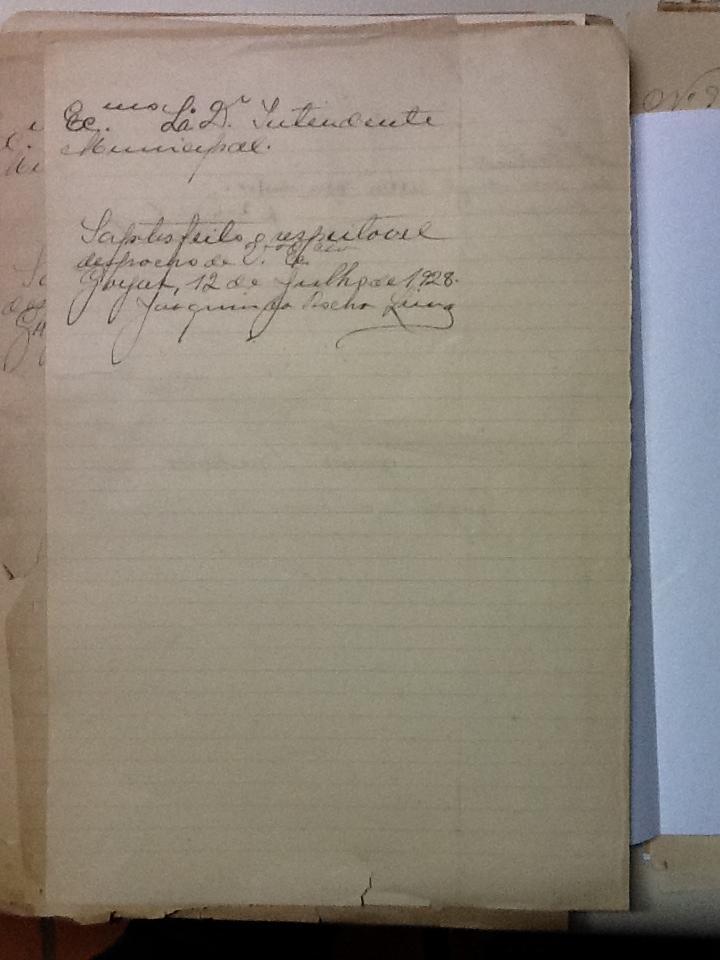 Ec.mo Sr. Dr. Intendente
Municipal.
Saptisfeito o respeitavel
despacho de V. Ex.
Goyaz, 12 de Julho de 1928.
Joaquim da Rocha Lima
Nº